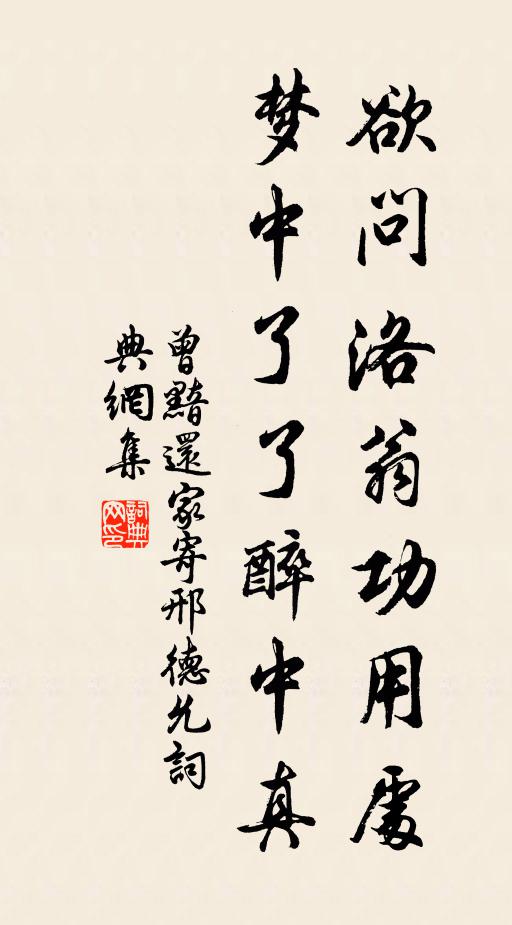 欲問洛翁功用處
梦中了了醉中真
曾黯還家寄邢德允詞
典網集
詞典
网印